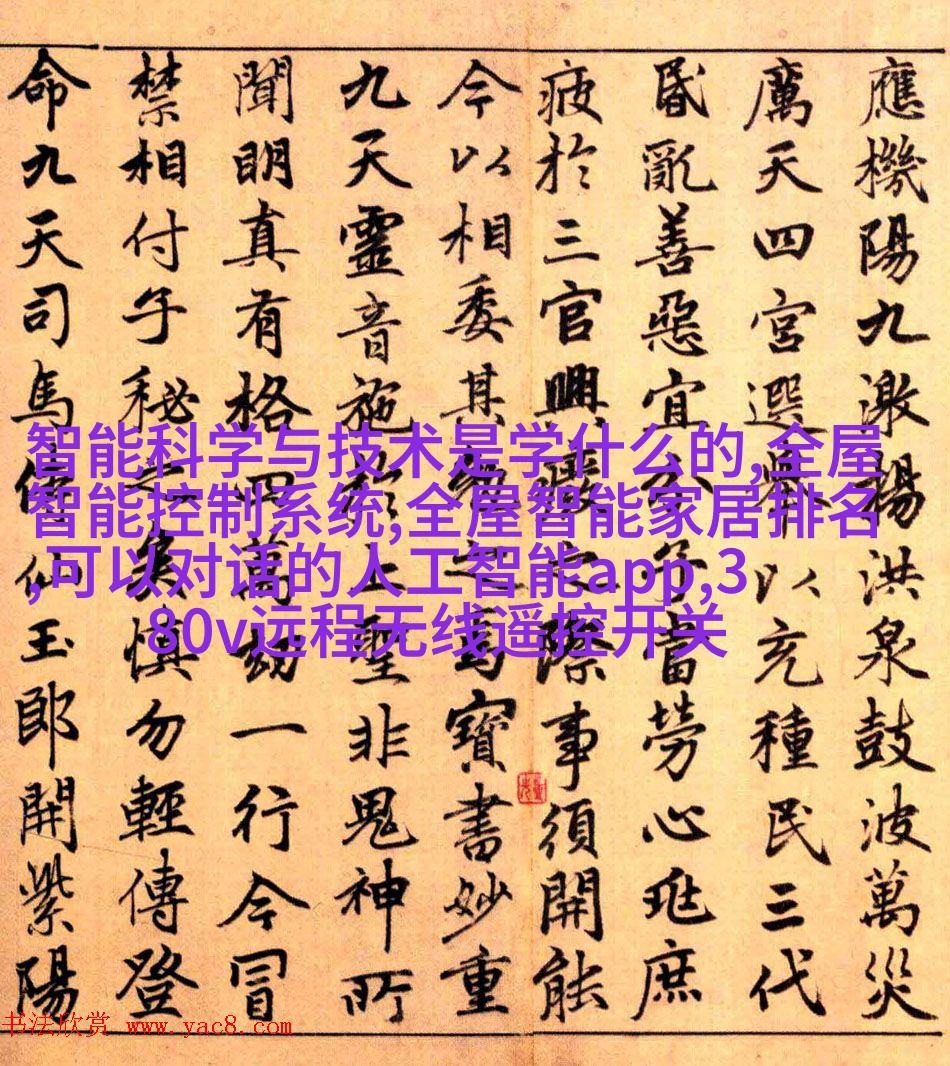 應機陽九激陽洪泉鼓波萬災
厲天四宮選擇以充種民三代
昏亂善惡宜分子當勞心兆庶
疲於三官興廢之際事須開能
今以相委其勉之焉寶書妙重
九天靈音施於上聖非鬼神所
聞明真有格四萬劫一行今冒
禁相付子秘之矣慎勿輕傳登
命九天司馬侍仙玉郎開紫陽
智能科学与技术是学什么的,全屋
智能控制系统,全屋智能家居排名
,可以对话的人工智能app,3
80v远程无线遥控开关
书法欣赏 www.yac8.com